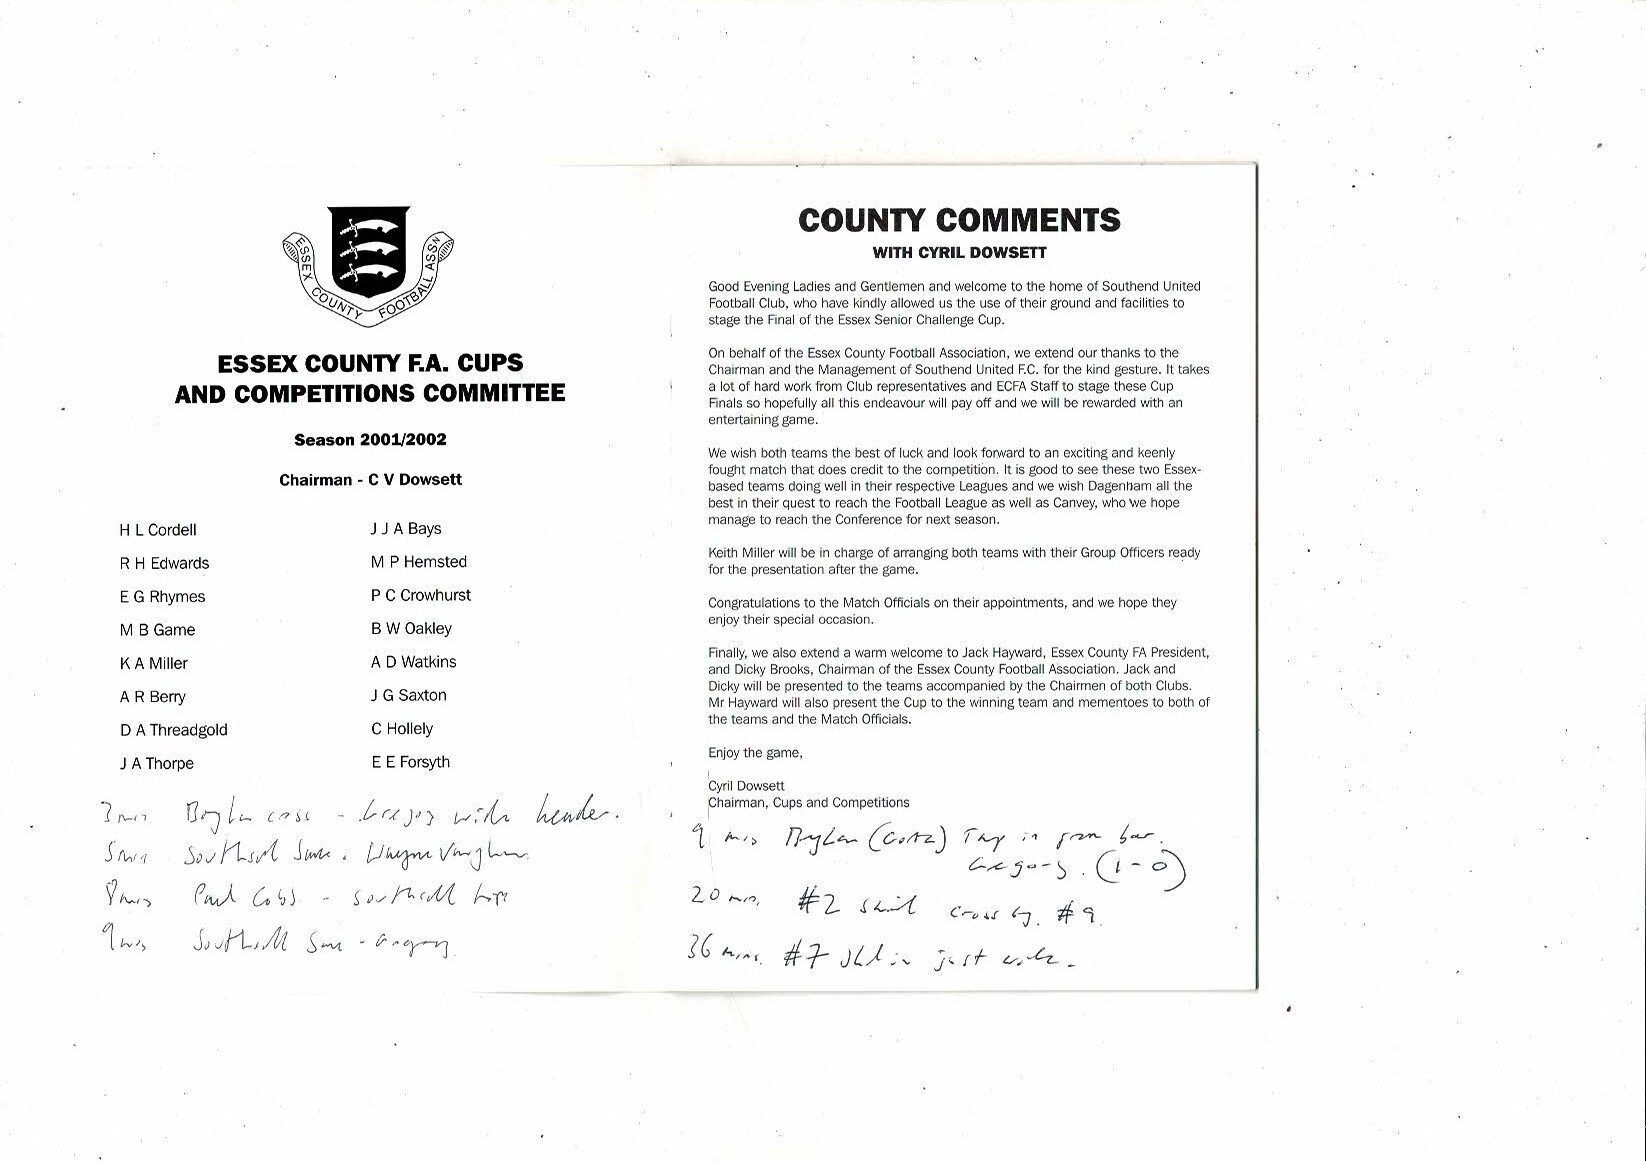 ESSEX COUNTY FOOTBALL ASSN
ESSEX COUNTY F.A. CUPS
AND COMPETITIONS COMMITTEE
Season 2001/2002
Chairman - C V Dowsett
H L Cordell
R H Edwards
E G Rhymes
M B Game
K A Miller
A R Berry
D A Threadgold
J A Thorpe
J J A Bays
M P Hemsted
P C Crowhurst
B W Oakley
A D Watkins
J G Saxton
C Hollely
E E Forsyth
3 mins Boylan cross - Gregory with header.
5 mins Southall Save. Wayne Vaughan
8 mins Paul Cobb - Southall
9 mins Southall Save - Gregory
COUNTY COMMENTS
WITH CYRIL DOWSETT
Good Evening Ladies and Gentlemen and welcome to the home of Southend United
Football Club, who have kindly allowed us the use of their ground and facilities to
stage the Final of the Essex Senior Challenge Cup.
On behalf of the Essex County Football Association, we extend our thanks to the
Chairman and the Management of Southend United F.C. for the kind gesture. It takes
a lot of hard work from Club representatives and ECFA Staff to stage these Cup
Finals so hopefully all this endeavour will pay off and we will be rewarded with an
entertaining game.
We wish both teams the best of luck and look forward to an exciting and keenly
fought match that does credit to the competition. It is good to see these two Essex-
based teams doing well in their respective Leagues and we wish Dagenham all the
best in their quest to reach the Football League as well as Canvey, who we hope
manage to reach the Conference for next season.
Keith Miller will be in charge of arranging both teams with their Group Officers ready
for the presentation after the game.
Congratulations to the Match Officials on their appointments, and we hope they
enjoy their special occasion.
Finally, we also extend a warm welcome to Jack Hayward, Essex County FA President,
and Dicky Brooks, Chairman of the Essex County Football Association. Jack and
Dicky will be presented to the teams accompanied by the Chairmen of both Clubs.
Mr Hayward will also present the Cup to the winning team and mementoes to both of
the teams and the Match Officials.
Enjoy the game,
Cyril Dowsett
Chairman, Cups and Competitions
9 mins Boylan Tap in from bar.
Gregory. (1-0)
20 mins. #2 cross by #9
36 mins. #7 just wide.